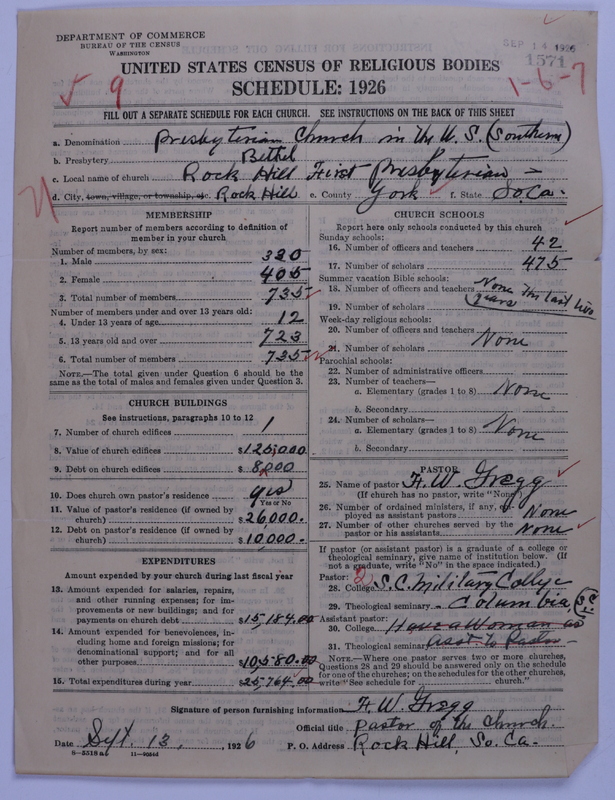 DEPARTMENT OF COMMERCE
BUREAU OF THE CENSUS
WASHINGTON
SEP 14 1926
1571
UNITED STATES CENSUS OF RELIGIOUS BODIES
SCHEDULE: 1926
5 9
1-6-7
FILL OUT A SEPARATE SCHEDULE FOR EACH CHURCH. SEE INSTRUCTIONS ON THE BACK OF THIS SHEET
a. Denomination Presbyterian Church in the U. S. (Southern)
b. Presbytery Bethel
c. Local name of church Rock Hill First Presbyterian -
d. City, town, village, or township, etc. Rock Hill e. County York f. State So. Ca.
MEMBERSHIP
Report number of members according to definition of
member in your church
Number of members, by sex:
1. Male 320
2. Female 405
3. Total number of members 735
Number of members under and over 13 years old:
4. Under 13 years of age 12
5. 13 years old and over 723
6. Total number of members 735
NOTE.—The total given under Question 6 should be the
same as the total of males and females given under Question 3.
CHURCH BUILDINGS
See instructions, paragraphs 10 to 12
7. Number of church edifices 1
8. Value of church edifices $125,000
9. Debt on church edifices $8,000
10. Does church own pastor's residence yes
Yes or No
11. Value of pastor's residence (if owned by
church) $26,000.
12. Debt on pastor's residence (if owned by
church) $10,000.
EXPENDITURES
Amount expended by your church during last fiscal year
13. Amount expended for salaries, repairs,
and other running expenses; for im-
provements or new buildings; and for
payments on church debt $15,184.00
14. Amount expended for benevolences, in-
cluding home and foreign missions; for
denominational support; and for all
other purposes $10,580.00
15. Total expenditures during year $25,764.00
CHURCH SCHOOLS
Report here only schools conducted by this church
Sunday schools:
16. Number of officers and teachers 42
17. Number of scholars 475
Summer vacation Bible schools:
18. Number of officers and teachers None the last two
years
19. Number of scholars
Week-day religious schools:
20. Number of officers and teachers
21. Number of scholars None
Parochial schools:
22. Number of administrative officers
23. Number of teachers—
a. Elementary (grades 1 to 8) None
b. Secondary
24. Number of scholars—
a. Elementary (grades 1 to 8) None
b. Secondary
PASTOR
25. Name of pastor F. W. Gregg
(If church has no pastor, write "None")
26. Number of ordained ministers, if any, em-
ployed as assistant pastors None
27. Number of other churches served by the
pastor or his assistants None
If pastor (or assistant pastor) is a graduate of a college or
theological seminary, give name of institution below. (If
not a graduate, write "No" in the space indicated.)
Pastor: 2
28. College S. C. Military College
29. Theological seminary Columbia, (S. C.)
Assistant pastor:
30. College Have a Woman as
31. Theological seminary asst to Pastor
NOTE.—Where one pastor served two or more churches,
Questions 28 and 29 should be answered only on the schedule
for one of the churches; on the schedules for the other churches,
write "See schedule for church."
Signature of person furnishing information F. W. Gregg
Official title Pastor of the Church.
Date Sept. 13, 1926 P. O. Address Rock Hill, So. Ca.